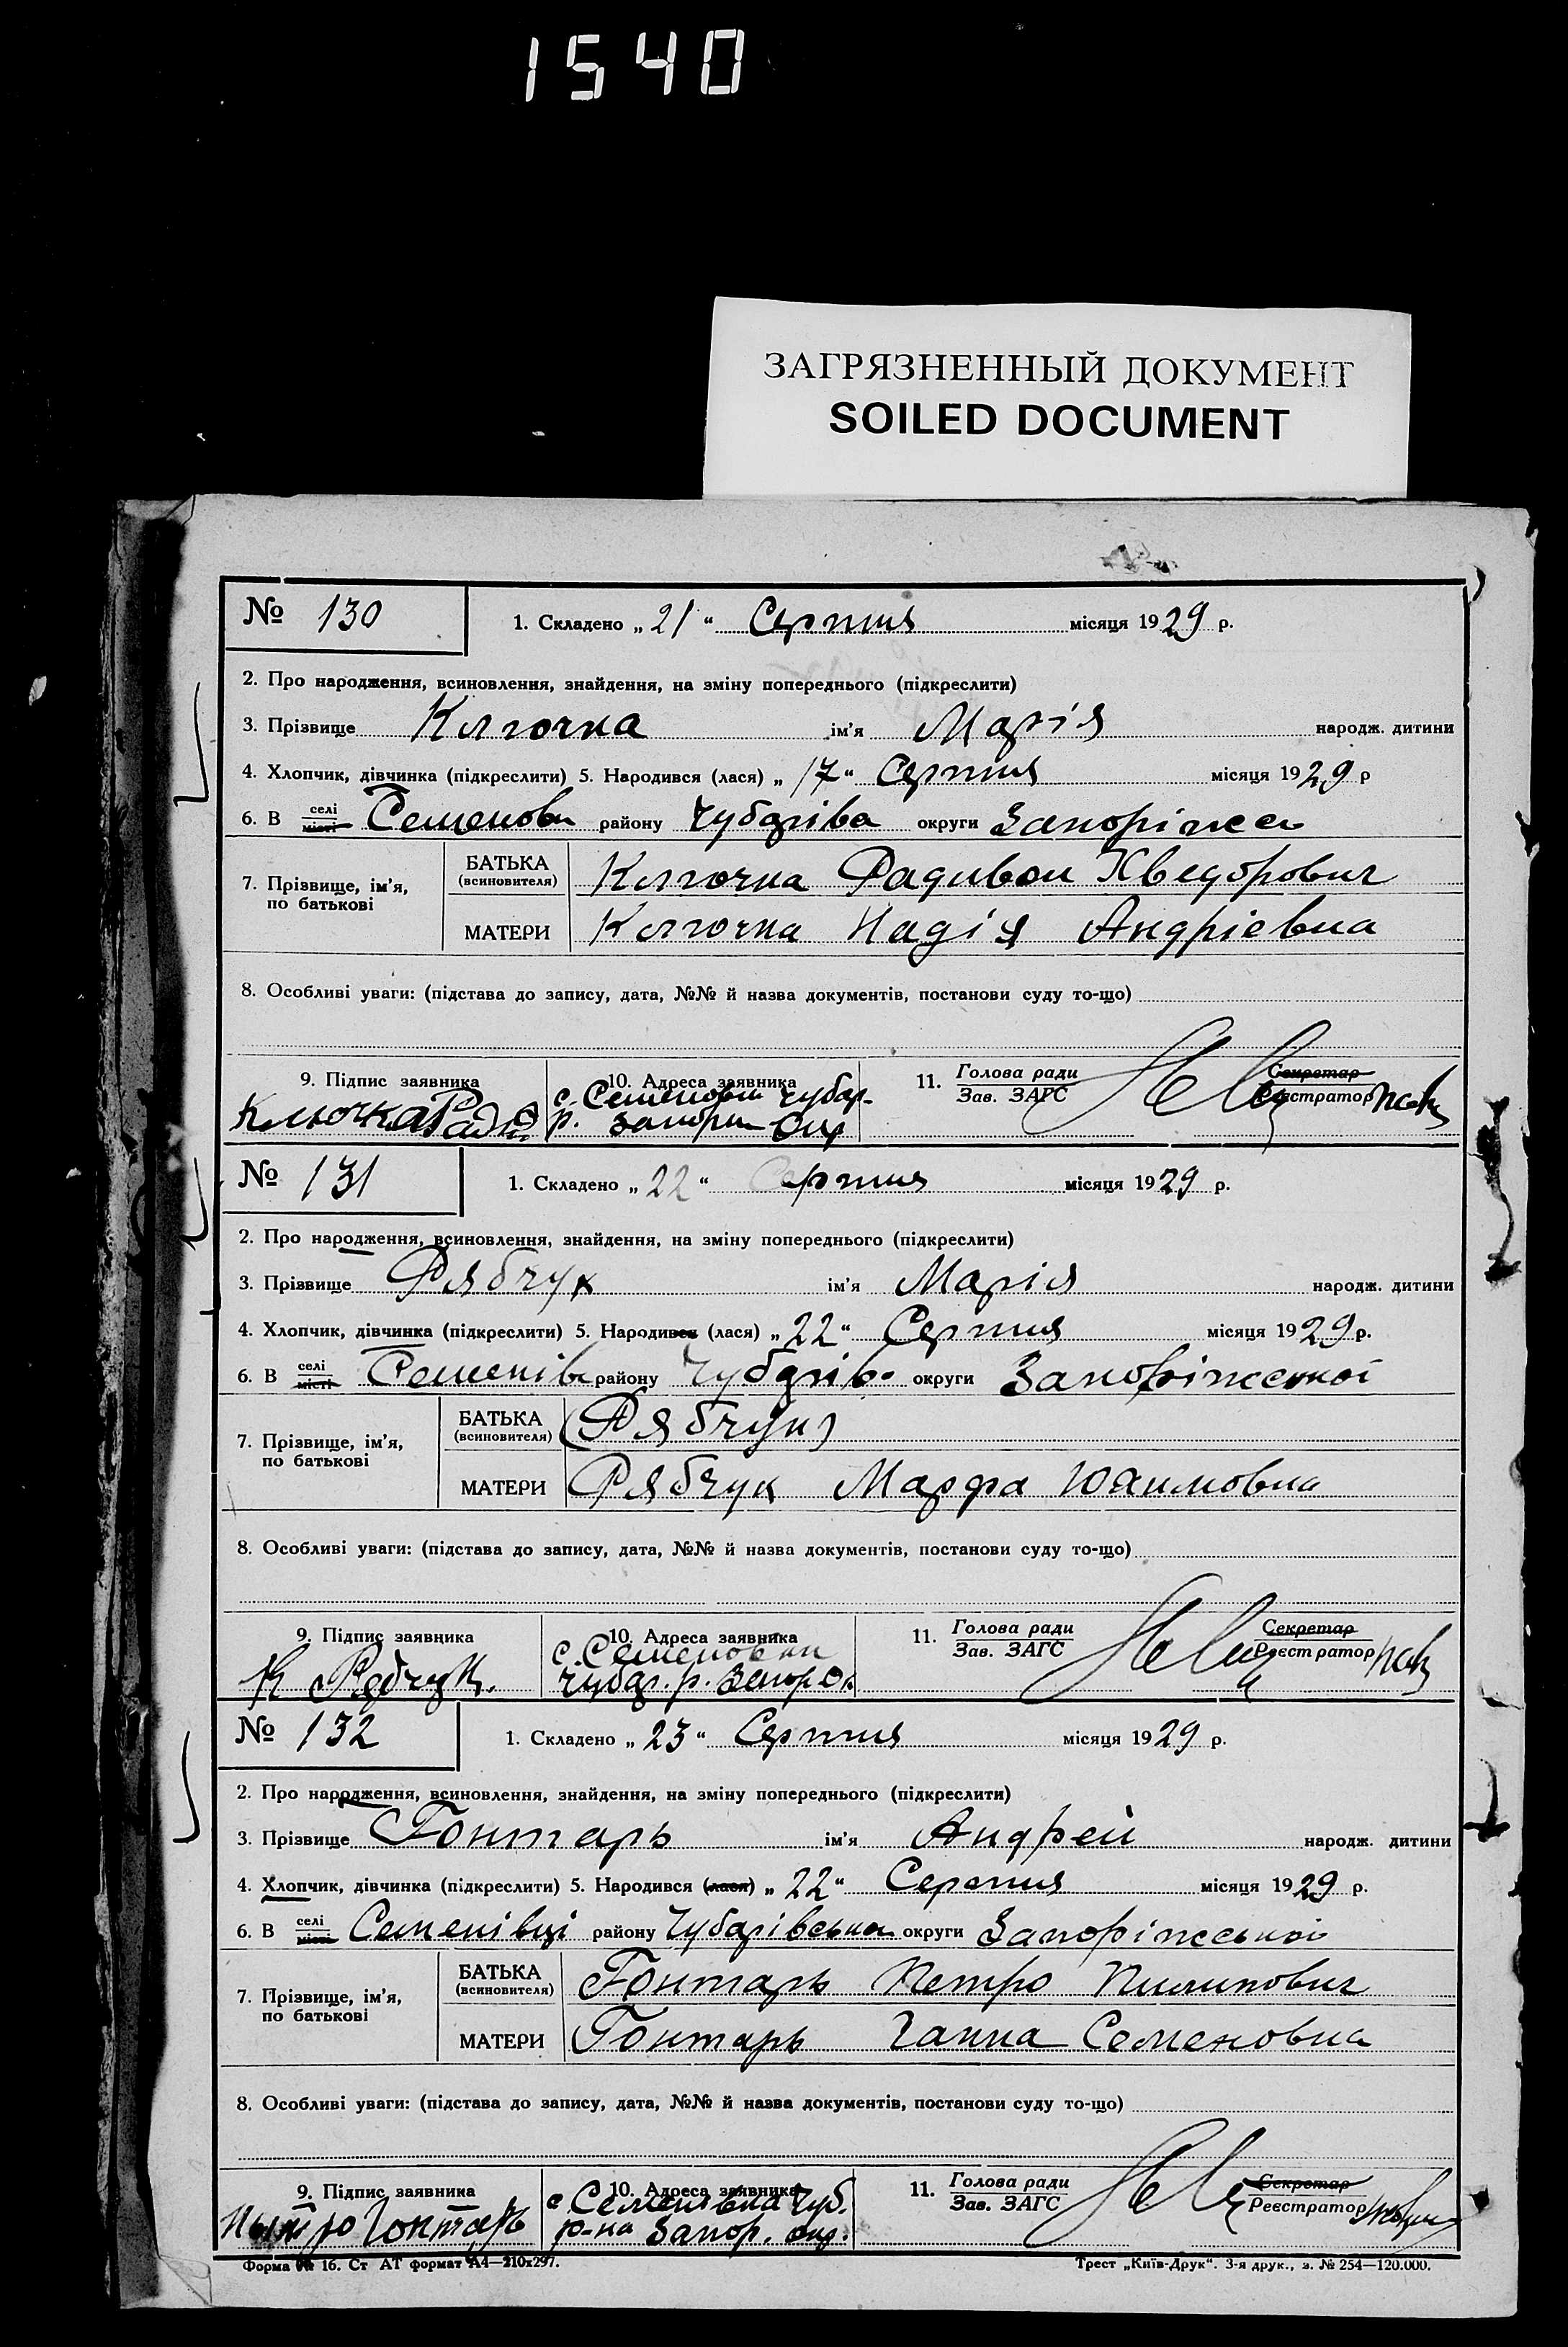 1540
ЗАГРЯЗНЕННЫЙ ДОКУМЕНТ
SOILED DOCUMENT
№ 130 1. Складено „ 21 “ Серпня місяця 1929 р.
2. Про народження, всиновлення, знайдення, на зміну попереднього (підкреслити)
3. Прізвище Ключка ім'я Марія народж. дитини
4. Хлопчик, дівчинка (підкреслити) 5. Народився (лася) „ 17 “ Серпня місяця 1929 р
6. В селі місті Семеновц району Чубарівсь округи Запоріжсь
7. Прізвище, ім'я, по батькові
БАТЬКА (всиновителя) Ключка Радивон Хведорович
МАТЕРИ Ключка Надія Андріевна
8. Особливі уваги: (підстава до запису, дата, №№ й назва документів, постанови суду то-що)
9. Підпис заявника 10. Адреса заявника 11. Голова ради Секретар
Зав. ЗАГС Реєстратор
Ключка с. Семеновки Чубар.
р. Запориж Окр
№ 131 1. Складено „ 22 “ Серпня місяця 1929 р.
2. Про народження, всиновлення, знайдення, на зміну попереднього (підкреслити)
3. Прізвище Рябчук ім'я Марія народж. дитини
4. Хлопчик, дівчинка (підкреслити) 5. Народився (лася) „ 22 “ Серпня місяця 1929 р.
6. В селі місті Семенівц району Чубарів округи Запоріжської
7. Прізвище, ім'я, по батькові
БАТЬКА (всиновителя) (Рябчук)
МАТЕРИ Рябчук Марфа Юхимовна
8. Особливі уваги: (підстава до запису, дата, №№ й назва документів, постанови суду то-що)
9. Підпис заявника 10. Адреса заявника 11. Голова ради Секретар
Зав. ЗАГС Реєстратор
Рябчук. с. Семеновки
Чубар. р. Запор Ок
№ 132 1. Складено „ 23 “ Серпня місяця 1929 р.
2. Про народження, всиновлення, знайдення, на зміну попереднього (підкреслити)
3. Прізвище Гонтарь ім'я Андрей народж. дитини
4. Хлопчик, дівчинка (підкреслити) 5. Народився (лася) „ 22 “ Серпня місяця 1929 р.
6. В селі місті Семенівці району Чубарівської округи Запоріжської
7. Прізвище, ім'я, по батькові
БАТЬКА (всиновителя) Гонтарь Петро Пилипович
МАТЕРИ Гонтарь Ганна Семеновна
8. Особливі уваги: (підстава до запису, дата, №№ й назва документів, постанови суду то-що)
9. Підпис заявника 10. Адреса заявника 11. Голова ради Секретар
Зав. ЗАГС Реєстратор
Гонтарь с. Семенівка Чуб.
р-на Запор. окр.
Форма № 16. Ст АТ формат А4—210х297. Трест „Київ-Друк“. 3-я друк., з. № 254—120.000.